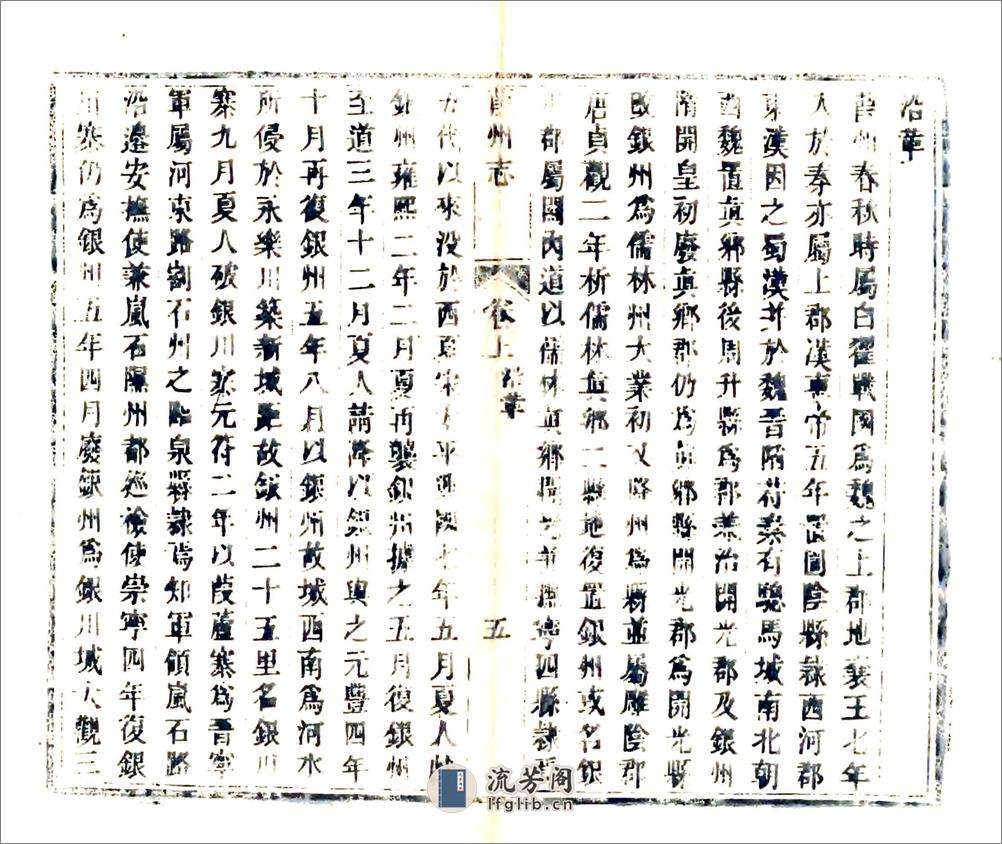 沿革
葭州春秋時屬白翟戰國爲魏之上郡地襄王七年
入於秦亦屬上郡漢惠帝五年置圁陰縣隸西河郡
東漢因之蜀漢幷於魏晉陷苻秦有驄馬城南北朝
西魏置眞鄉縣後周升縣爲郡兼治開光郡及銀州
隋開皇初廢眞鄉郡仍爲眞鄉縣開光郡爲開光縣
改銀州爲儒林州大業初又降州爲縣並屬雕陰郡
唐貞觀二年析儒林眞鄉二縣地復置銀州或名銀
川郡屬關內道以儒林眞鄉開光並撫寧四縣隸焉
葭州志
卷上 沿革
五
五代以來没於西夏宋太平興國七年五月夏人
銀州雍熙二年二月夏再襲銀州據之五月復銀州
至道三年十二月夏人請降以銀州與之元豐四年
十月再復銀州五年八月以銀州故城西南爲河水
所侵於永樂川築新城距故銀州二十五里名銀川
寨九月夏人破銀川寨元符二年以葭蘆寨爲晉寧
軍屬河東路割石州之臨泉縣隸焉知軍領嵐石路
沿邊安撫使兼嵐石隰州都巡檢使崇寧四年復銀
川寨仍爲銀州五年四月廢銀州爲銀川城大觀三
流芳阁
lfglib.cn